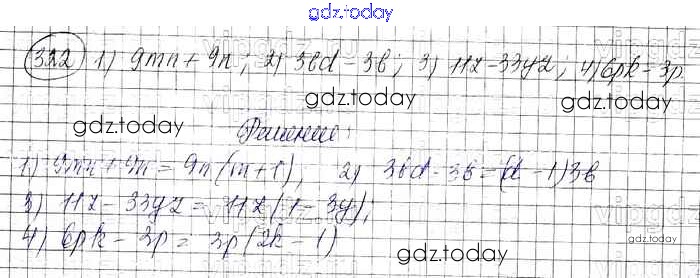 gdz.today
322) 1) 9mn+9n; 2) 3bd-3b; 3) 11z-33yz; 4) 6pk-3p.
gdz.today
gdz.today
gdz.today
Решение:
1) 9mn+9n=9n(m+1), 2) 3bd-3b=(d-1)3b
3) 11z-33yz=11z(1-3y);
4) 6pk-3p=3p(2k-1)
gdz.today
gdz.today